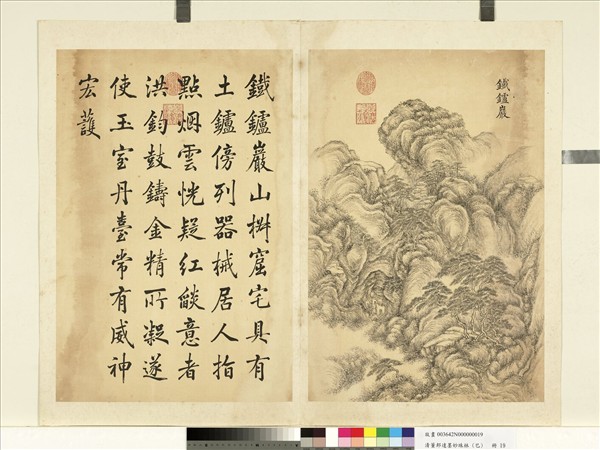 鐵鑪巖
鐵鑪巖山椒窟宅具有
土鑪傍列器械居人指
點烟雲恍疑紅燄意者
洪鈞鼓鑄金精所凝遂
使玉室丹臺常有威神
宏護
故畫 003642N000000019
清董邦達墨妙珠林(巳) 冊 19